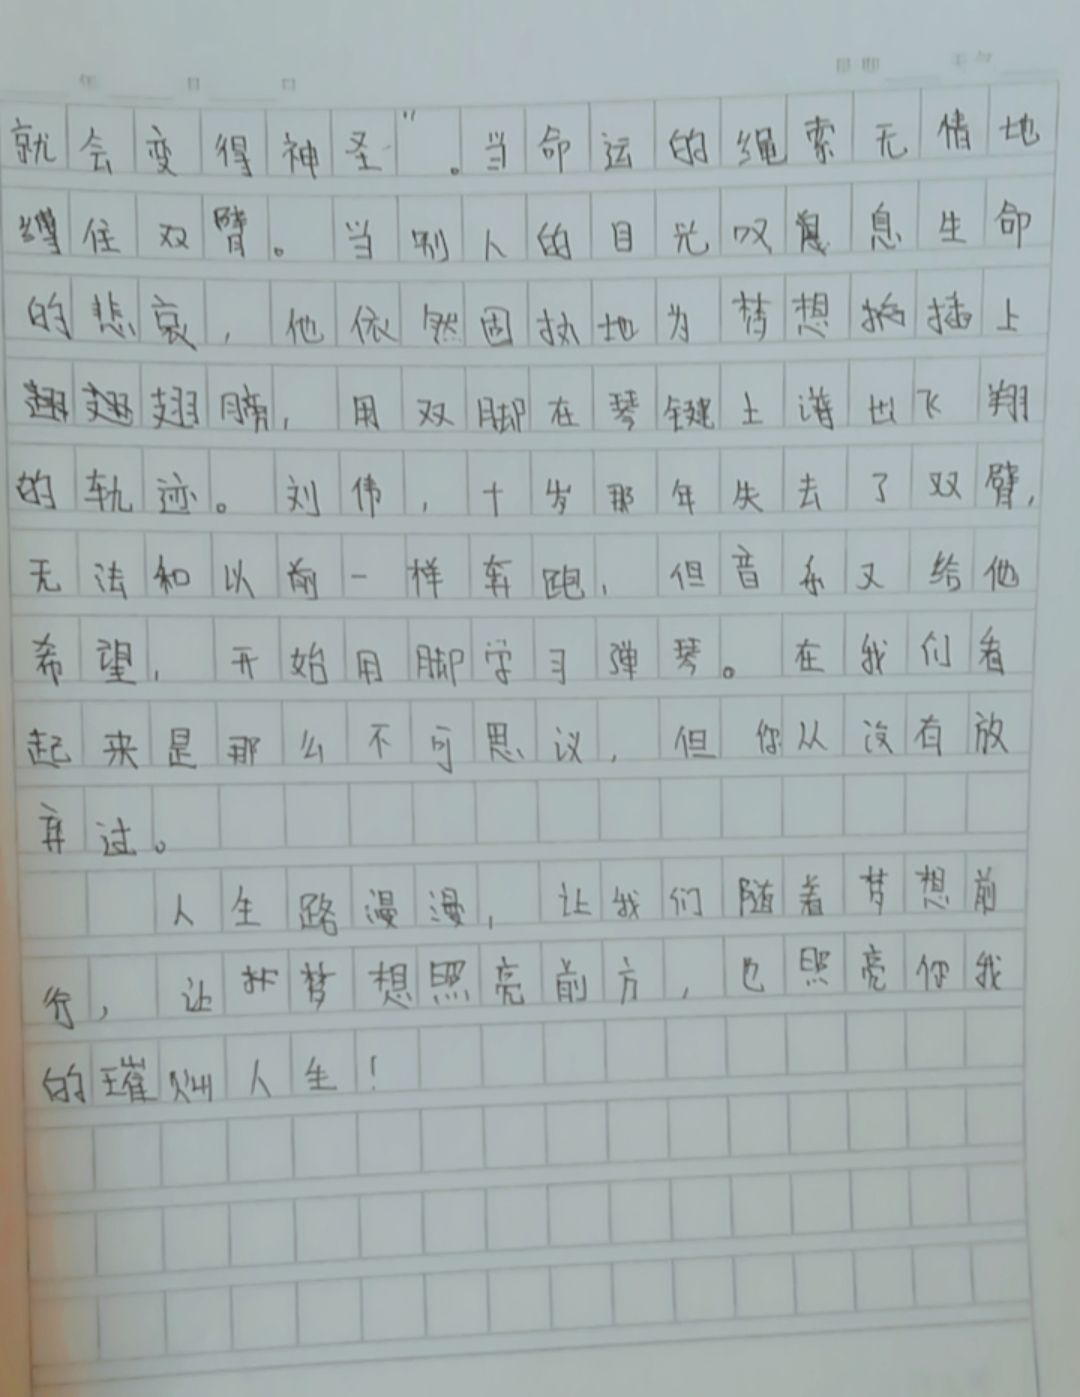 年 月 日 星期 天气
就会变得神圣”。当命运的绳索无情地
缚住双臂。当别人的目光叹息生命
的悲哀，他依然固执地为梦想插上
翅膀，用双脚在琴键上谱出飞翔
的轨迹。刘伟，十岁那年失去了双臂，
无法和以前一样奔跑，但音乐又给他
希望，开始用脚学习弹琴。在我们看
起来是那么不可思议，但你从没有放
弃过。
人生路漫漫，让我们随着梦想前
行，让梦想照亮前方，也照亮你我
的璀灿人生！